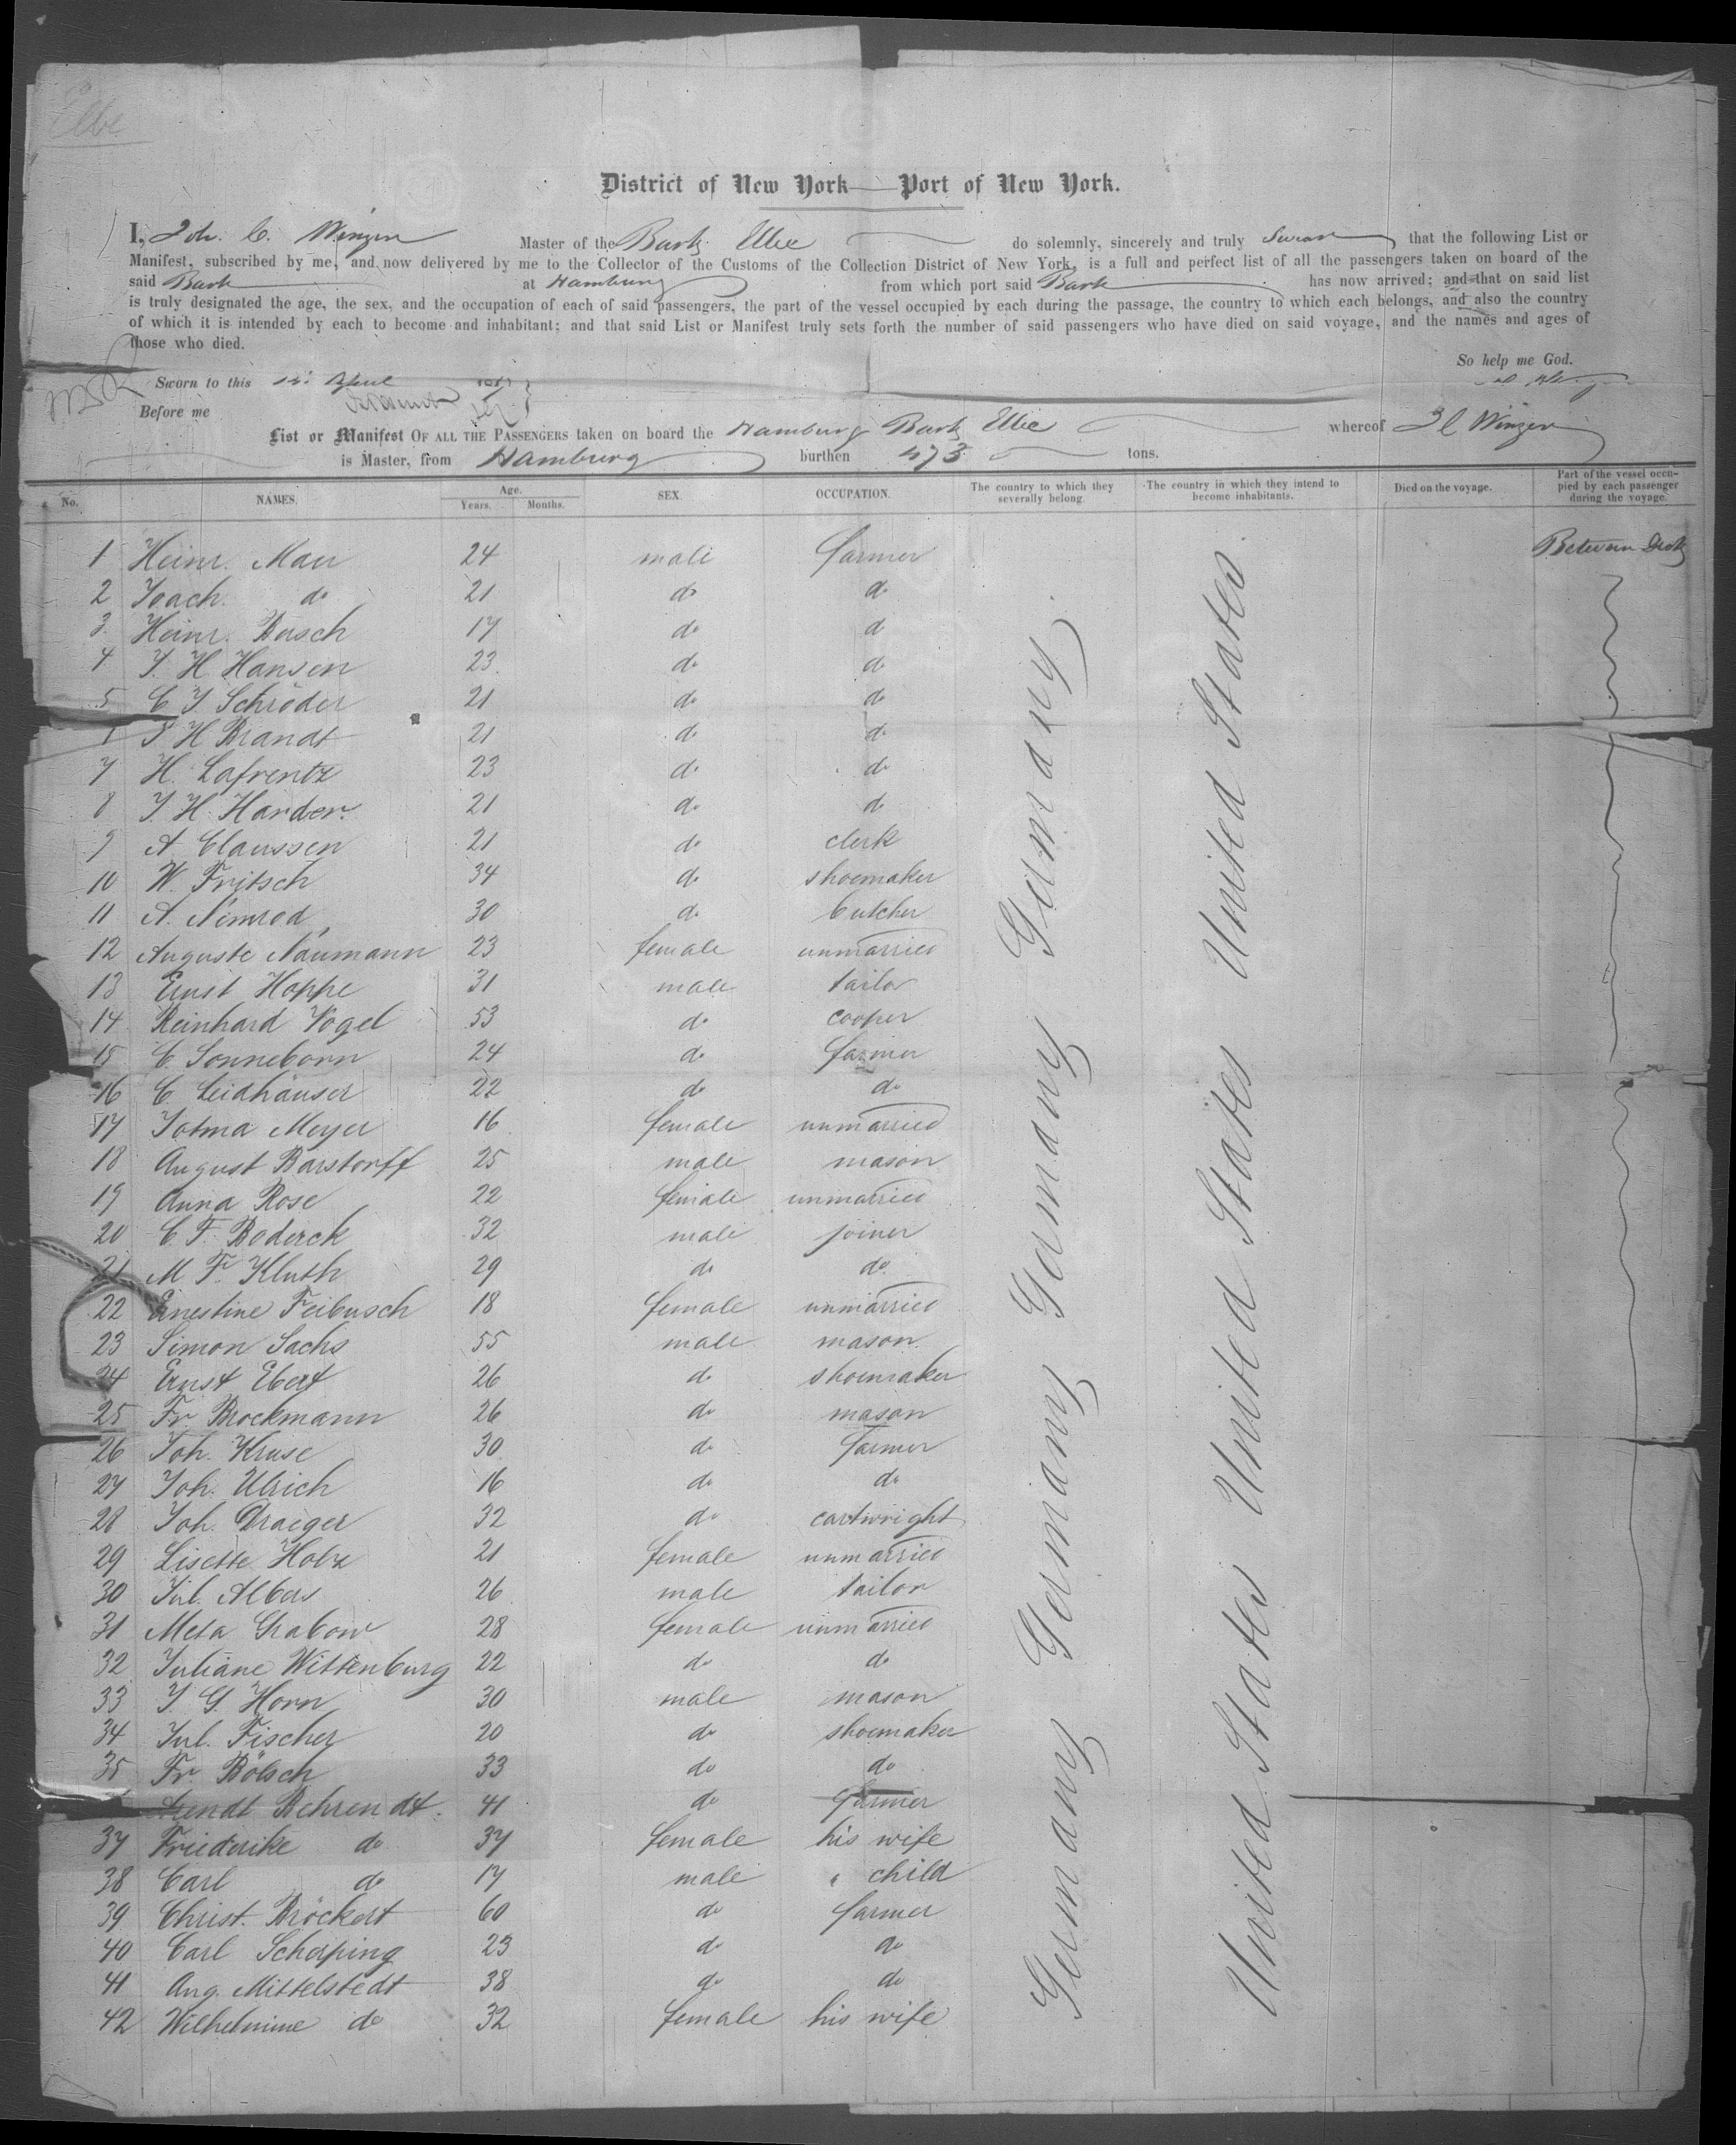 Elbe
District of New York—Port of New York.
I, Joh. C. Winzen Master of the Bark Elbe do solemnly, sincerely and truly swear that the following List or
Manifest, subscribed by me, and now delivered by me to the Collector of the Customs of the Collection District of New York, is a full and perfect list of all the passengers taken on board of the
said Bark at Hamburg from which port said Bark has now arrived; and that on said list
is truly designated the age, the sex, and the occupation of each of said passengers, the part of the vessel occupied by each during the passage, the country to which each belongs, and also the country
of which it is intended by each to become and inhabitant; and that said List or Manifest truly sets forth the number of said passengers who have died on said voyage, and the names and ages of
those who died.
So help me God.
Sworn to this April
Before me
List or Manifest OF ALL THE PASSENGERS taken on board the Hamburg Bark Elbe whereof J C Winzen
is Master, from Hamburg burthen 473 tons.
No. NAMES. Age. Years. Months. SEX. OCCUPATION. The country to which they severally belong. The country in which they intend to become inhabitants. Died on the voyage. Part of the vessel occupied by each passenger during the voyage.
1 Heinr. Mau 24 male farmer Between Deck
2 Joach. do 21 do do
3 Heinr. Busch 17 do do
4 J. H. Hansen 23 do do
5 C J Schröder 21 do do
J H Brandt 21 do do
7 H. Lafrentz 23 do do
8 J. H. Harder 21 do do
9 A Claussen 21 do clerk
10 W. Fritsch 34 do shoemaker
11 A. Nimrod 30 do butcher
12 Auguste Naumann 23 female unmarried
13 Ernst Hoppe 31 male tailor
14 Reinhard Vogel 53 do cooper
15 C Sonneborn 24 do farmer
16 C Leidhäuser 22 do do
17 Jotma Meyer 16 female unmarried
18 August Barstorff 25 male mason
19 Anna Rose 22 female unmarried
20 C. F. Boderck 32 male joiner
21 M F. Kluth 29 do do
22 Ernestine Feibusch 18 female unmarried
23 Simon Sachs 55 male mason
24 Ernst Ebert 26 do shoemaker
25 Fr. Brockmann 26 do mason
26 Joh. Kruse 30 do farmer
27 Joh. Ulrich 16 do do
28 Joh. Draeger 32 do cartwright
29 Lisette Holz 21 female unmarried
30 Jul. Albers 26 male tailor
31 Meta Grabow 28 female unmarried
32 Juliane Wittenburg 22 do do
33 J. G. Horn 30 male mason
34 Jul. Fischer 20 do shoemaker
35 Fr. Bölsch 33 do do
Arendt Behrendt 41 do farmer
37 Friederike do 37 female his wife
38 Carl do 17 male " child
39 Christ. Bröckert 60 do farmer
40 Carl Scherping 23 do do
41 Aug. Mittelstedt 38 do do
42 Wilhelmine do 32 female his wife
Germany Germany Germany Germany
United States United States United States